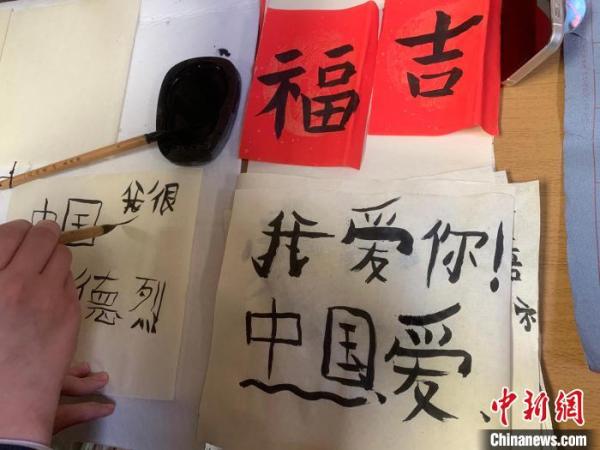 福
吉
中国 我很
德烈
我爱你!
中国爱
中新网
Chinanews.com